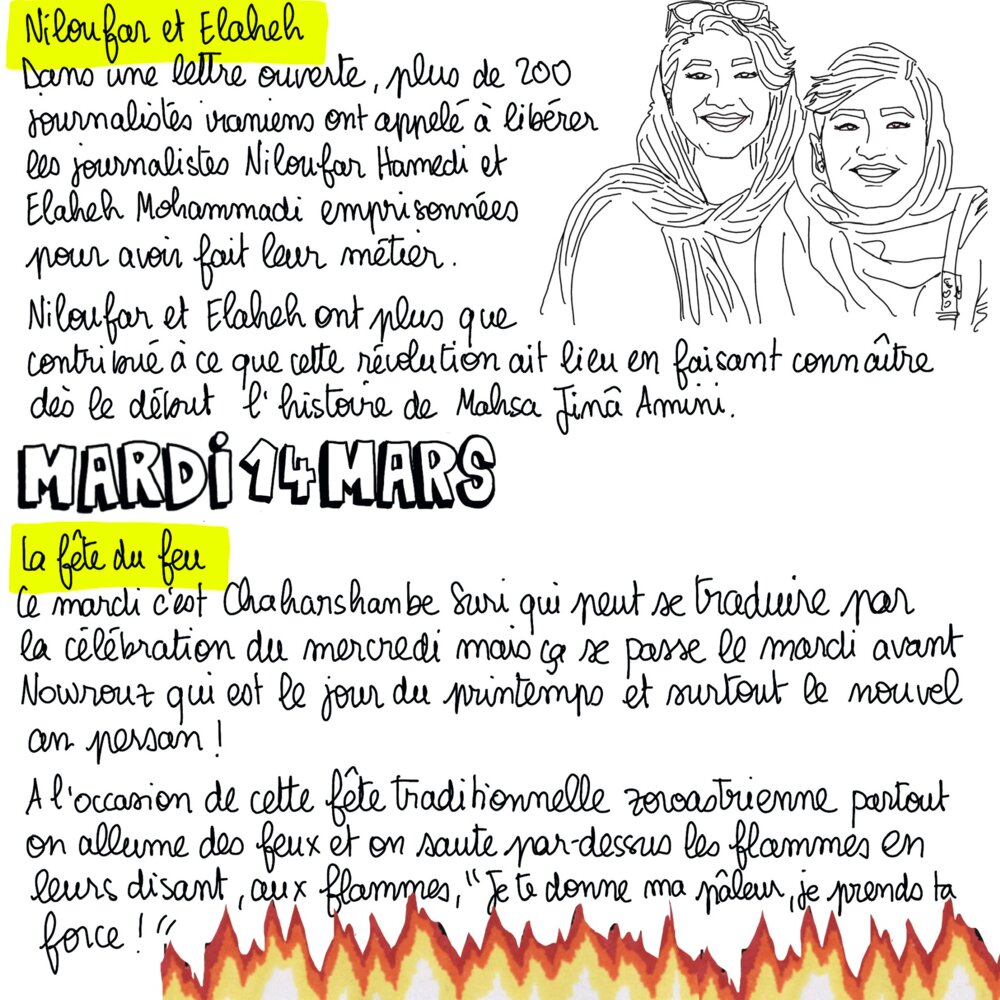 Niloufar et Elaheh
Dans une lettre ouverte, plus de 200
journalistes iraniens ont appelé à libérer
les journalistes Niloufar Hamedi et
Elaheh Mohammadi emprisonnées
pour avoir fait leur métier.
Niloufar et Elaheh ont plus que
contribué à ce que cette révolution ait lieu en faisant connaître
dès le début l'histoire de Mahsa Jinâ Amini.
MARDI 14 MARS
La fête du feu
Ce mardi c'est Chaharshanbe Suri qui peut se traduire par
la célébration du mercredi mais ça se passe le mardi avant
Nowrouz qui est le jour du printemps et surtout le nouvel
an persan !
A l'occasion de cette fête traditionnelle zoroastrienne partout
on allume des feux et on saute par-dessus les flammes en
leurs disant, aux flammes, "Je te donne ma pâleur, je prends ta
force ! "